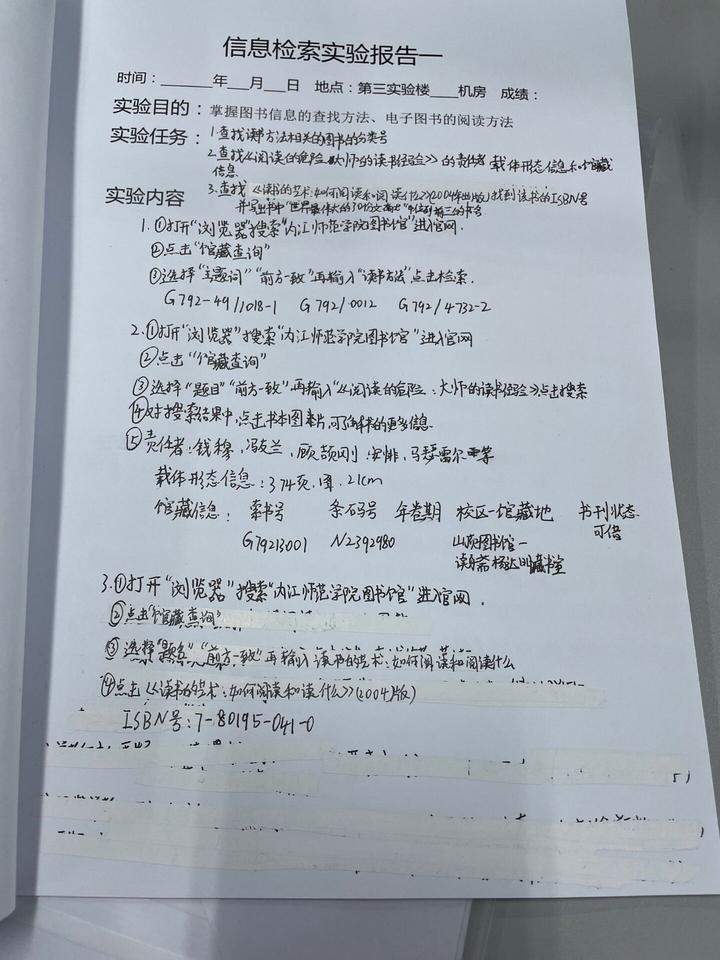 信息检索实验报告一
时间：______年___月___日 地点：第三实验楼____机房 成绩：
实验目的：掌握图书信息的查找方法、电子图书的阅读方法
实验任务：1.查找读书方法相关的图书的分类号
2.查找《阅读的危险 大师的读书经验》的责任者 载体形态信息和馆藏
信息
3.查找《读书的艺术:如何阅读和阅读什么》(2004年出版)找到该书的ISBN号
并写出书中"世界最伟大的30份文献"中位列前三的书名
实验内容
1.①打开"浏览器"搜索"内江师范学院图书馆"进入官网.
②点击"馆藏查询"
③选择"主题词""前方一致"再输入"读书方法"点击检索.
G792-49/1018-1 G792/0012 G792/4732-2
2.①打开"浏览器"搜索"内江师范学院图书馆"进入官网
②点击"馆藏查询"
③选择"题目""前方一致"再输入"《阅读的危险:大师的读书经验》点击搜索
④对搜索结果中,点击书本图片,可了解书的更多信息.
⑤责任者:钱穆,冯友兰,顾颉刚 马瑟雷尔 等
载体形态信息:374页.图.21cm
馆藏信息: 索书号 条码号 年卷期 校区—馆藏地 书刊状态
可借
G79213001 N2392980 图书馆—
藏书室
3.①打开"浏览器"搜索"内江师范学院图书馆"进入官网.
②点击"馆藏查询"
③选择"题名""前方一致"再输入读书的艺术:如何阅读和阅读什么
④点击《读书的艺术:如何阅读和读什么》(2004版)
ISBN号:7-80195-041-0